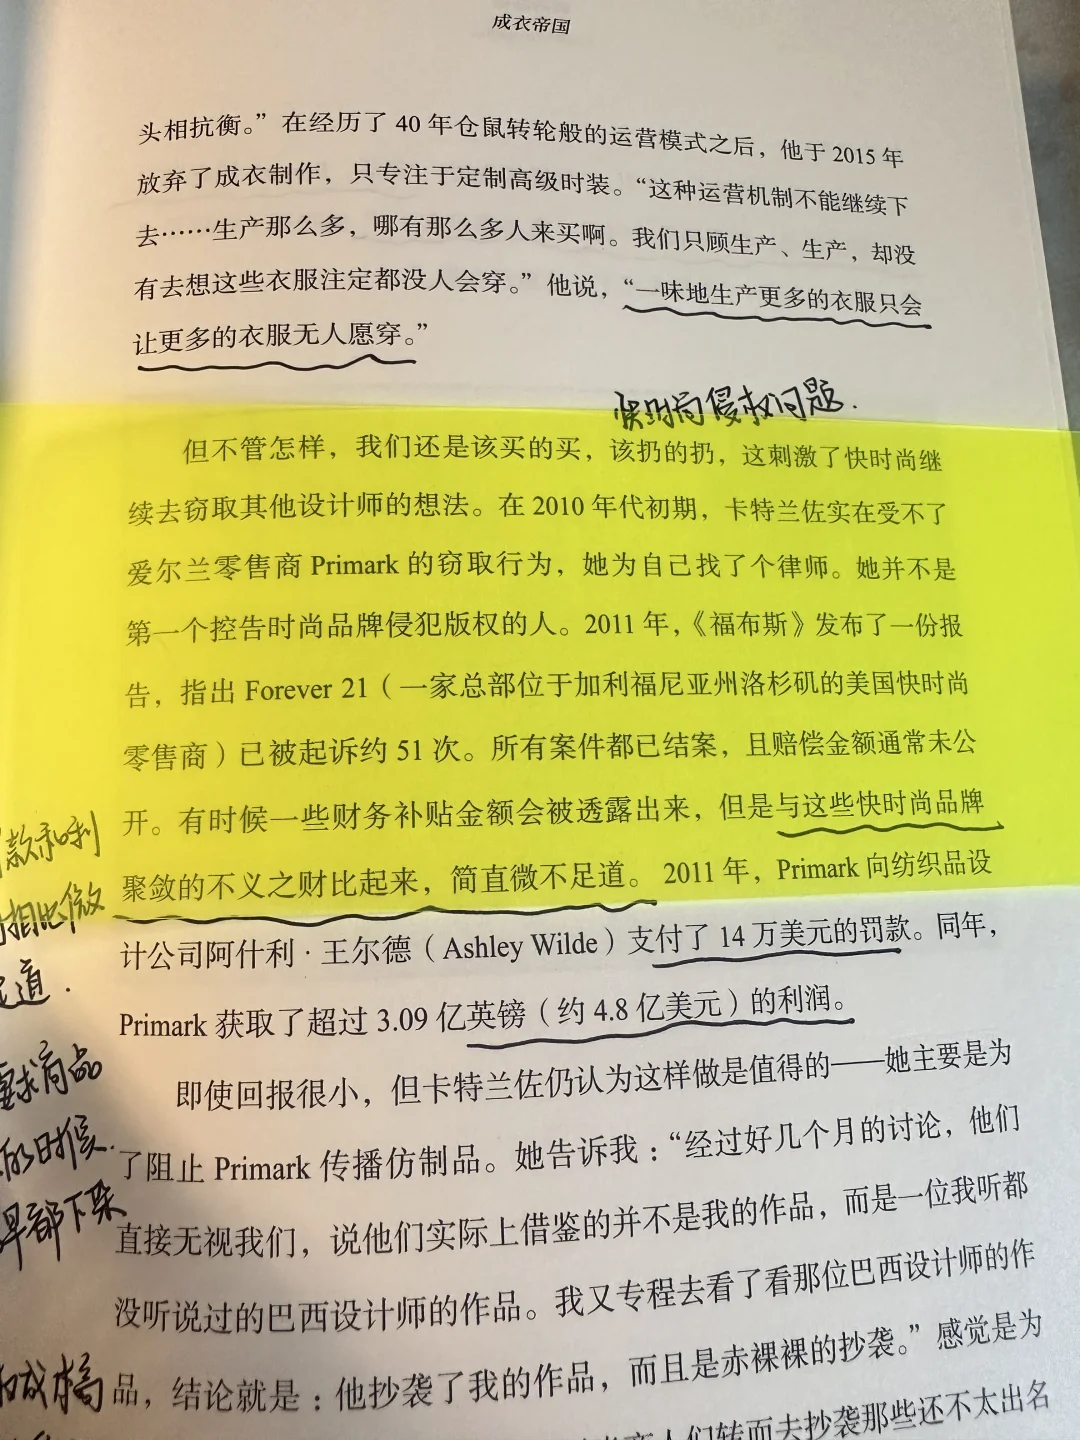 成衣帝国
头相抗衡。”在经历了 40 年仓鼠转轮般的运营模式之后，他于 2015 年
放弃了成衣制作，只专注于定制高级时装。“这种运营机制不能继续下
去……生产那么多，哪有那么多人来买啊。我们只顾生产、生产，却没
有去想这些衣服注定都没人会穿。”他说，“一味地生产更多的衣服只会
让更多的衣服无人愿穿。”
快时尚侵权问题.
但不管怎样，我们还是该买的买，该扔的扔，这刺激了快时尚继
续去窃取其他设计师的想法。在 2010 年代初期，卡特兰佐实在受不了
爱尔兰零售商 Primark 的窃取行为，她为自己找了个律师。她并不是
第一个控告时尚品牌侵犯版权的人。2011 年，《福布斯》发布了一份报
告，指出 Forever 21（一家总部位于加利福尼亚州洛杉矶的美国快时尚
零售商）已被起诉约 51 次。所有案件都已结案，且赔偿金额通常未公
开。有时候一些财务补贴金额会被透露出来，但是与这些快时尚品牌
聚敛的不义之财比起来，简直微不足道。2011 年，Primark 向纺织品设
计公司阿什利·王尔德（Ashley Wilde）支付了 14 万美元的罚款。同年，
Primark 获取了超过 3.09 亿英镑（约 4.8 亿美元）的利润。
款和利
相比微
道.
即使回报很小，但卡特兰佐仍认为这样做是值得的——她主要是为
了阻止 Primark 传播仿制品。她告诉我：“经过好几个月的讨论，他们
直接无视我们，说他们实际上借鉴的并不是我的作品，而是一位我听都
没听说过的巴西设计师的作品。我又专程去看了看那位巴西设计师的作
品，结论就是：他抄袭了我的作品，而且是赤裸裸的抄袭。”感觉是为
商人们转而去抄袭那些还不太出名
求商品
的时候.
早都下架